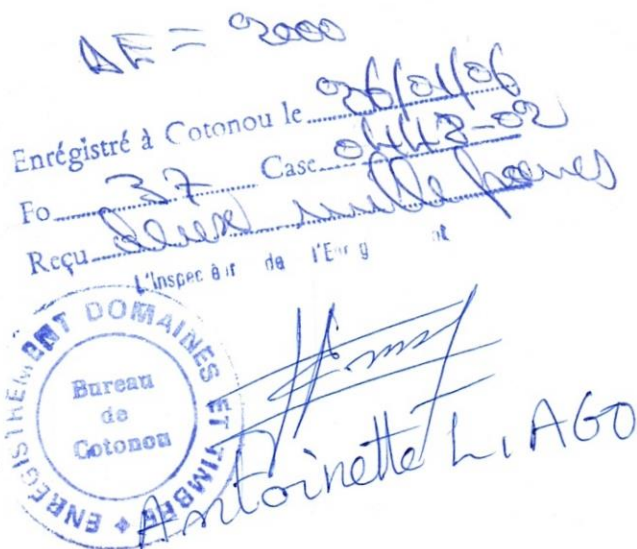 DE = 2000
Enrégistré à Cotonou le 26/01/06
Fo 37 Case 0443-02
Reçu deux mille francs
L'Inspecteur de l'Enreg
ENREGISTREMENT DOMAINES ET TIMBRE
Bureau
de
Cotonou
Antoinette L. AGO